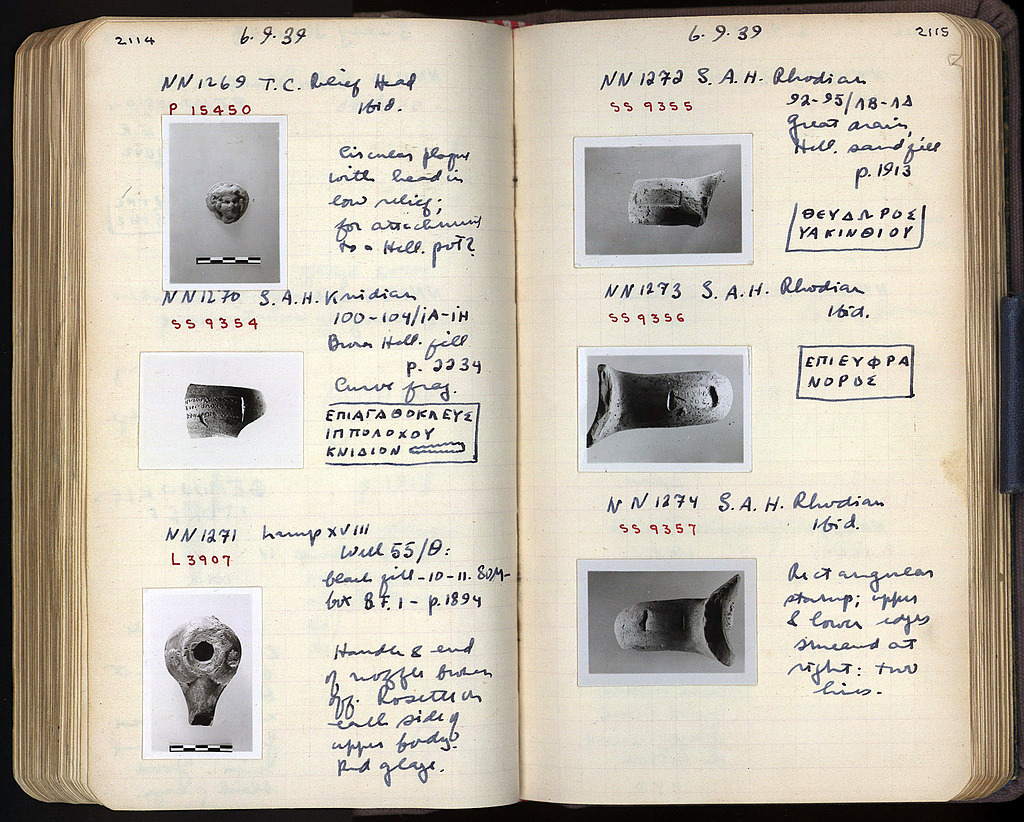 2114
6.9.39
NN1269 T.C. Relief Head
Ibid.
P 15450
Circular plaque
with head in
low relief;
for attachment
to a Hell. pot?
NN1270 S.A.H. Knidian
SS 9354
100-104/ΙΑ-ΙΗ
Brown Hell. fill
p. 2234
Curve frag.
ΕΠΙΑΓΑΘΟΚΛΕΥΣ
ΙΠΠΟΛΟΧΟΥ
ΚΝΙΔΙΟΝ
NN1271 Lamp XVIII
L 3907
Well 55/Θ:
black fill-10-11.80M-
box B.F.1-p.1894
Handle & end
of nozzle broken
off. Rosette on
each side of
upper body.
Red glaze.
2115
6.9.39
NN1272 S.A.H. Rhodian
SS 9355
92-95/ΛΒ-ΛΔ
Great drain,
Hell. sand fill
p.1913
ΘΕΥΔΩΡΟΣ
ΥΑΚΙΝΘΙΟΥ
NN1273 S.A.H. Rhodian
Ibid.
SS 9356
ΕΠΙΕΥΦΡΑ
ΝΟΡΟΣ
NN1274 S.A.H Rhodian
Ibid.
SS 9357
Rectangular
stamp; upper
& lower edges
smeared at
right: two
lines.